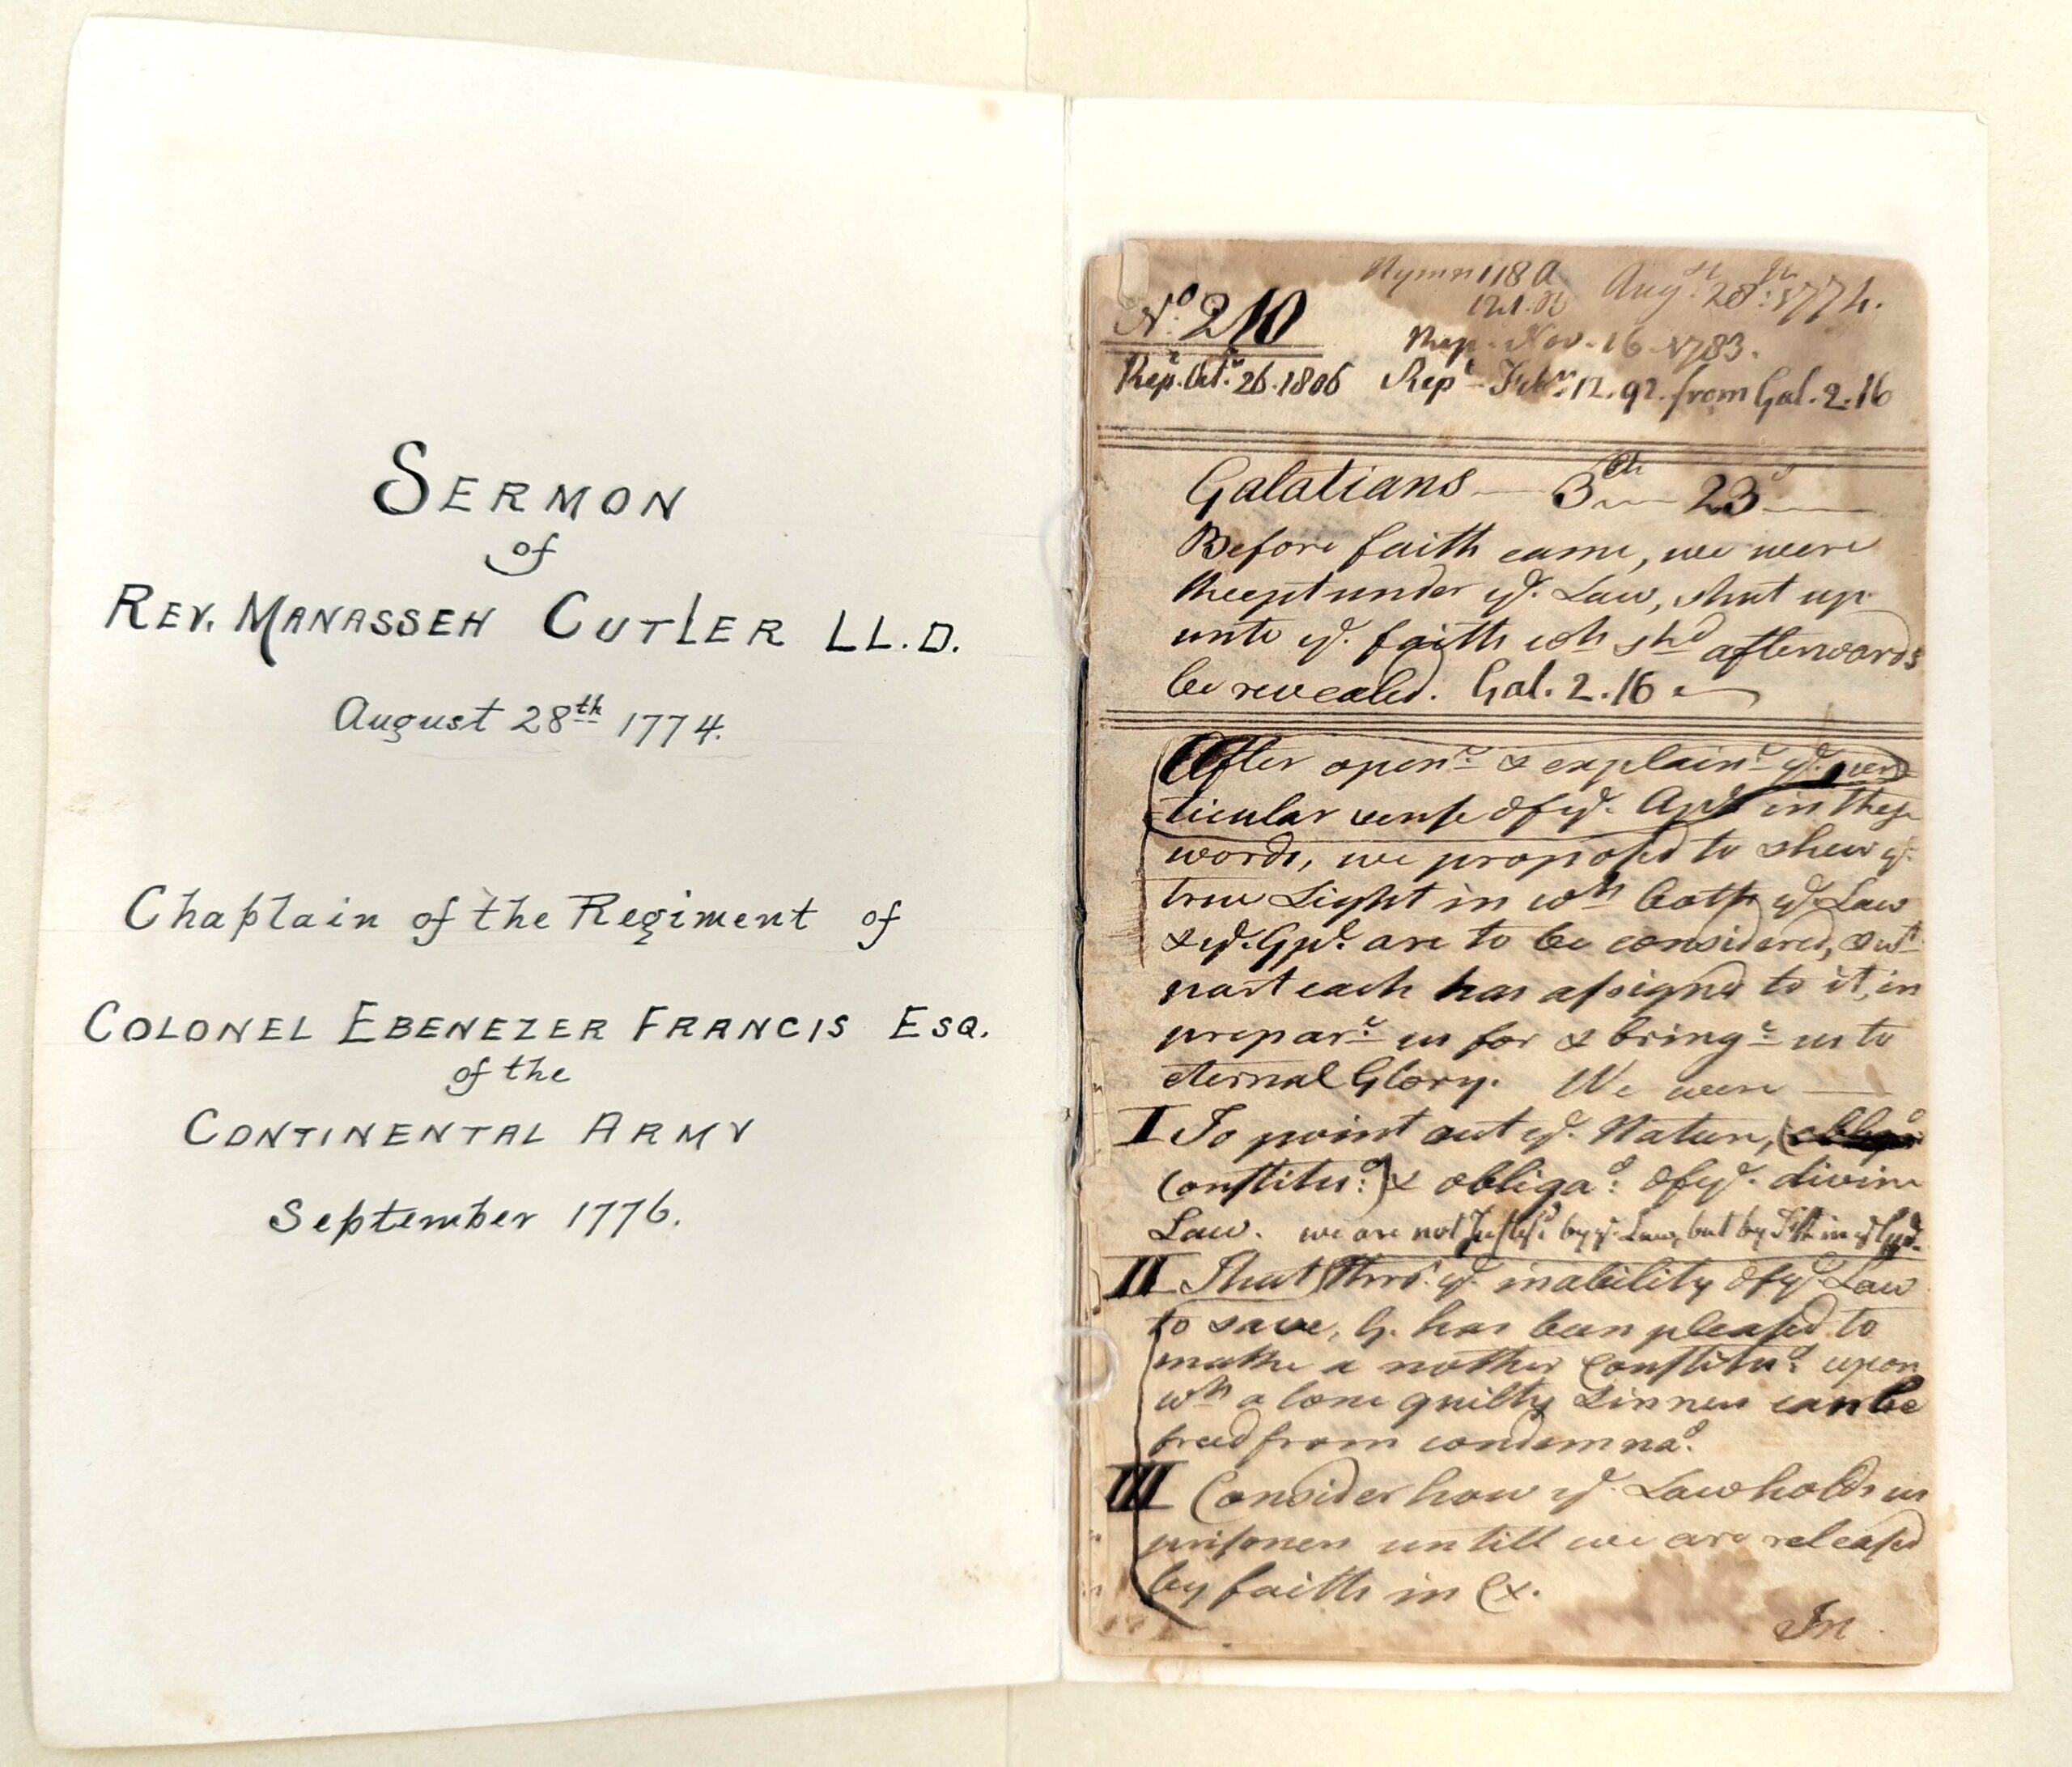 SERMON
of
REV. MANASSEH CUTLER LL.D.
August 28th 1774.
Chaplain of the Regiment of
COLONEL EBENEZER FRANCIS ESQ.
of the
CONTINENTAL ARMY
September 1776.
Hymn 118 A Augst 28th 1774.
No. 210
Rep. Nov. 16 1783.
Rep. Octr. 26. 1806 Repd Febr. 12. 92. from Gal. 2. 16
Galatians 3 23
Before faith came, we were
kept under ye. Law, shut up
unto ye. faith wh shd afterwards
be revealed. Gal. 2. 16
After openg & explaing ye. par
ticular sense of ye. Apl in these
words, we proposed to shew ye.
true Light in wh both ye. Law
& ye. Gpl. are to be considered, & wt
part each has assignd to it, in
preparg us for & bringg us to
eternal Glory. We were
I To point out ye. Nature,
Constitun.) & obligan. of ye. divine
Law. we are not Justifd. by ye. Law, but by Fth in ye
II That thro' ye. inability of ye. Law
to save, G. has been pleased to
make a nother Constitun. upon
wh a lone guilty Sinners can be
freed from condemnan.
III Consider how ye. Law holds us
prisoners untill we are released
by faith in Cx.
In